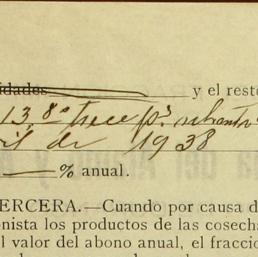 idades y el rest
13 8º trece pª
il de 1938
% anual.
TERCERA.—Cuando por causa d
onista los productos de las cosech
l valor del abono anual, el fracci